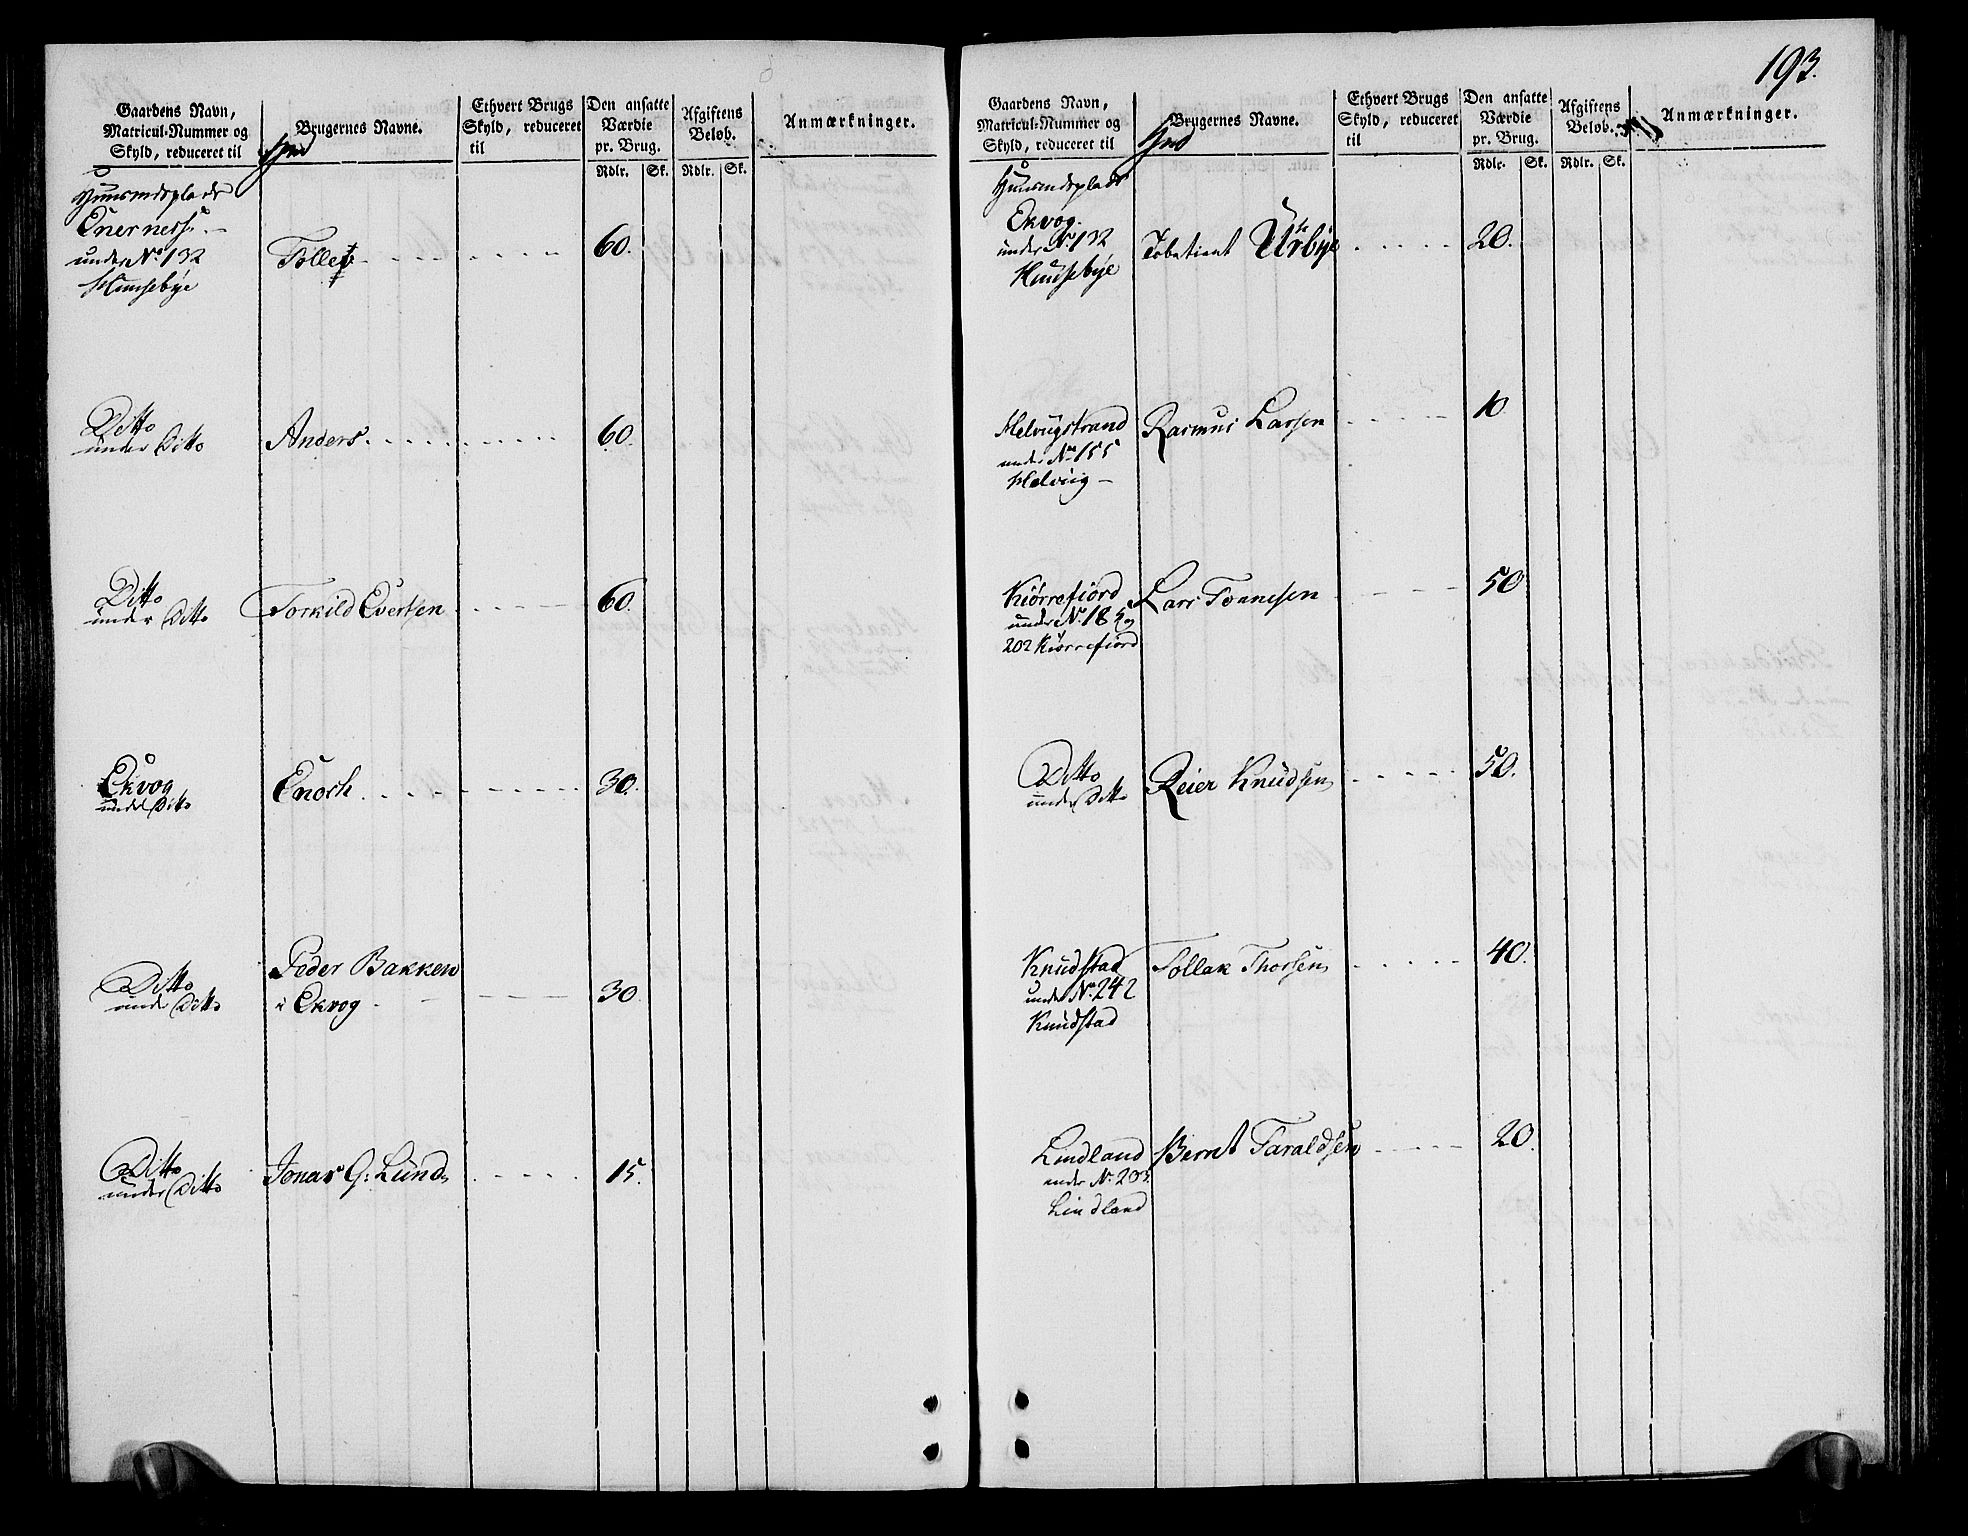 Gaardens Navn,
Matricul-Nummer og
Skyld, reduceret til
Brugernes Navne.
Ethvert Brugs
Skyld, reduceret
til
Den ansatte
Værdie
pr. Brug.
Rdlr. Sk.
Afgiftens
Beløb.
Rdlr. Sk.
Anmærkninger.
Huusmdsplads
under No 132
Huusebye
Tollef 60.
Ditto
under Ditto
Anders 60.
Ditto
under Ditto
Torkild Evertsen 60.
Ekvog
under Ditto
Enoch 30.
Ditto
under Ditto
Peder Bakken
i Ekvog 30.
Ditto
under Ditto
Jonas G: Lund 15.
193.
Gaardens Navn,
Matricul-Nummer og
Skyld, reduceret til
Brugernes Navne.
Ethvert Brugs
Skyld, reduceret
til
Den ansatte
Værdie
pr. Brug.
Rdlr. Sk.
Afgiftens
Beløb.
Rdlr. Sk.
Anmærkninger.
Huusmdsplads
Ekvog
under No 132
Huusebye
Urbye 20.
Helvigstrand
under No 155
Helvig
Rasmus Larsen 10
Kiørrefiord
under No 185 og
202 Kiørrefiord
Lars Tønnesen 50
Ditto
under Ditto
Reier Knudsen 50.
Knudstad
under No 242
Knudstad
Tollak Thorsen 40.
Lindland
under No 203
Lindland
Bernt Taraldsen 20.